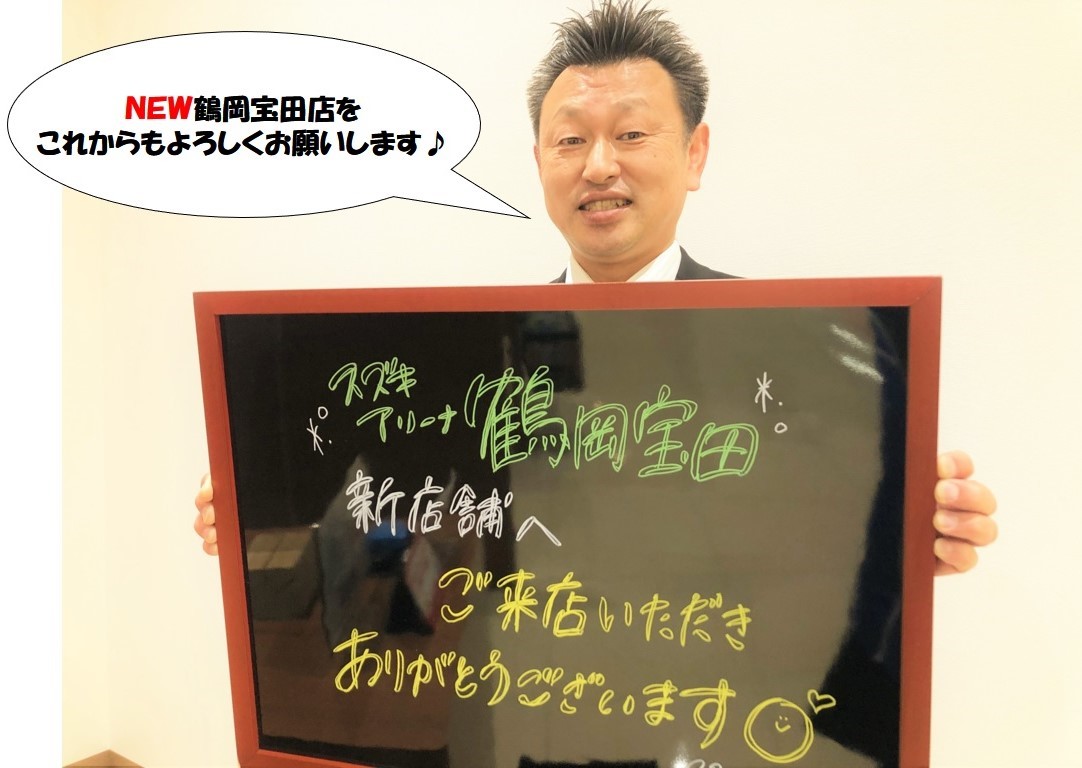 NEW鶴岡宝田店を
これからもよろしくお願いします♪
スズキ
アリーナ鶴岡宝田
新店舗へ
ご来店いただき
ありがとうございます